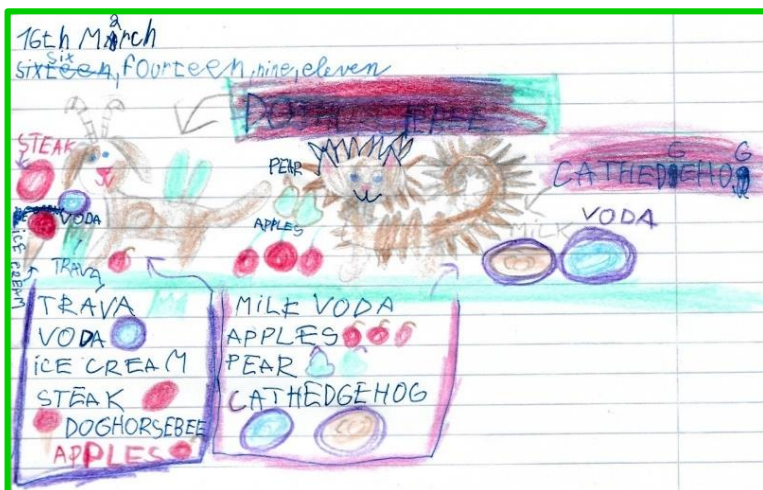 16th March
six, fourteen, nine, eleven
STEAK
PEAR
CATHEDGEHOG
VODA
APPLES
MILK
VODA
ICE CREAM
TRAVA
TRAVA
VODA
ICE CREAM
STEAK
DOGHORSEBEE
APPLES
MILK VODA
APPLES
PEAR
CATHEDGEHOG